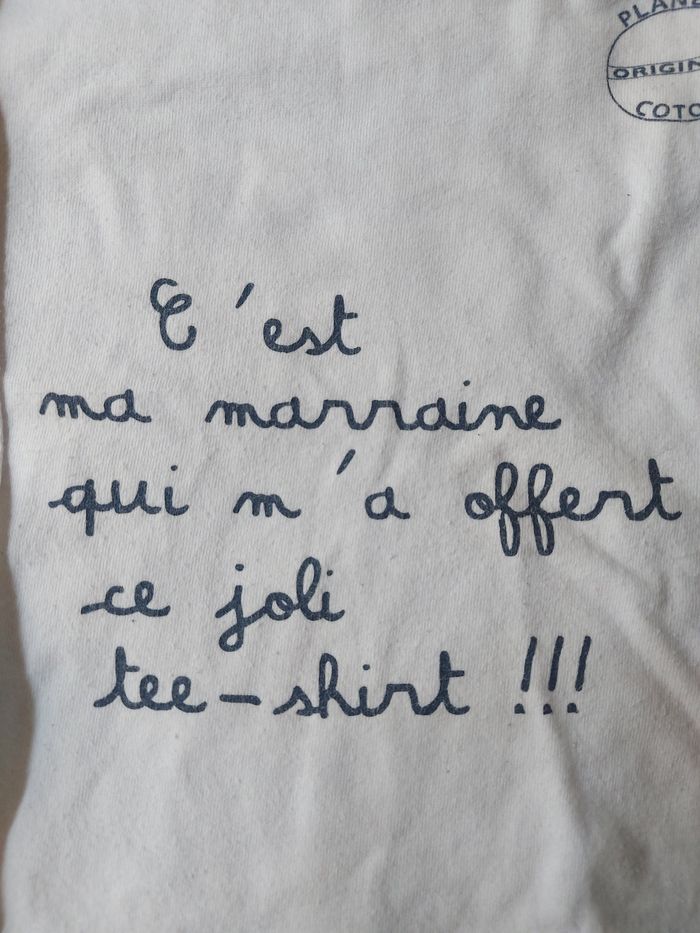 ORIGIN
C'est
ma marraine
qui m'a offert
ce joli
tee-shirt !!!